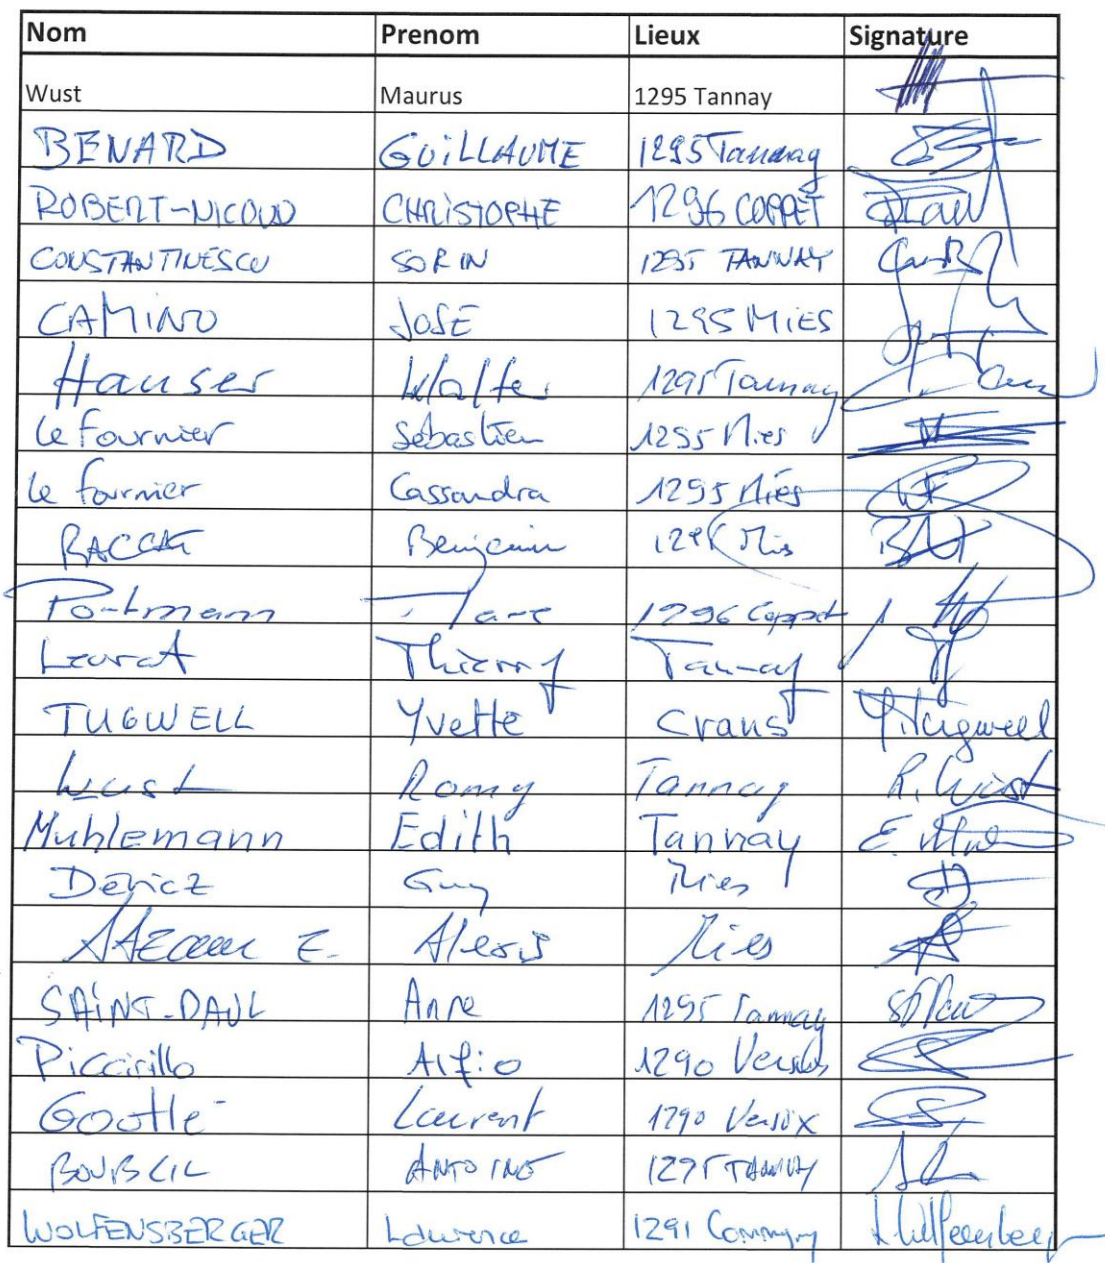 Nom Prenom Lieux Signature
Wust Maurus 1295 Tannay
BENARD GUILLAUME 1295 Tannay
ROBERT-NICOUD CHRISTOPHE 1296 COPPET
CONSTANTINESCU SORIN 1295 TANNAY
CAMINO JOSE 1295 MIES
Hauser Walter 1295 Tannay
Le fournier Sébastien 1295 Mies
Le fournier Cassandra 1295 Miés
Benjamin 1295 Mies
Portmann Marc 1296 Coppet
Thierry Tannay
TUGWELL Yvette Crans Y. Tugwell
Wust Romy Tannay R. Wüst
Muhlemann Edith Tannay
Guy Mies
Alexis Mies
SAINT-PAUL Anne 1295 Tannay
Piccirillo Alfio 1290 Versoix
Laurent 1290 Versoix
BOUBLIL ANTOINE 1295 TANNAY
WOLFENSBERGER Laurence 1291 Commugny